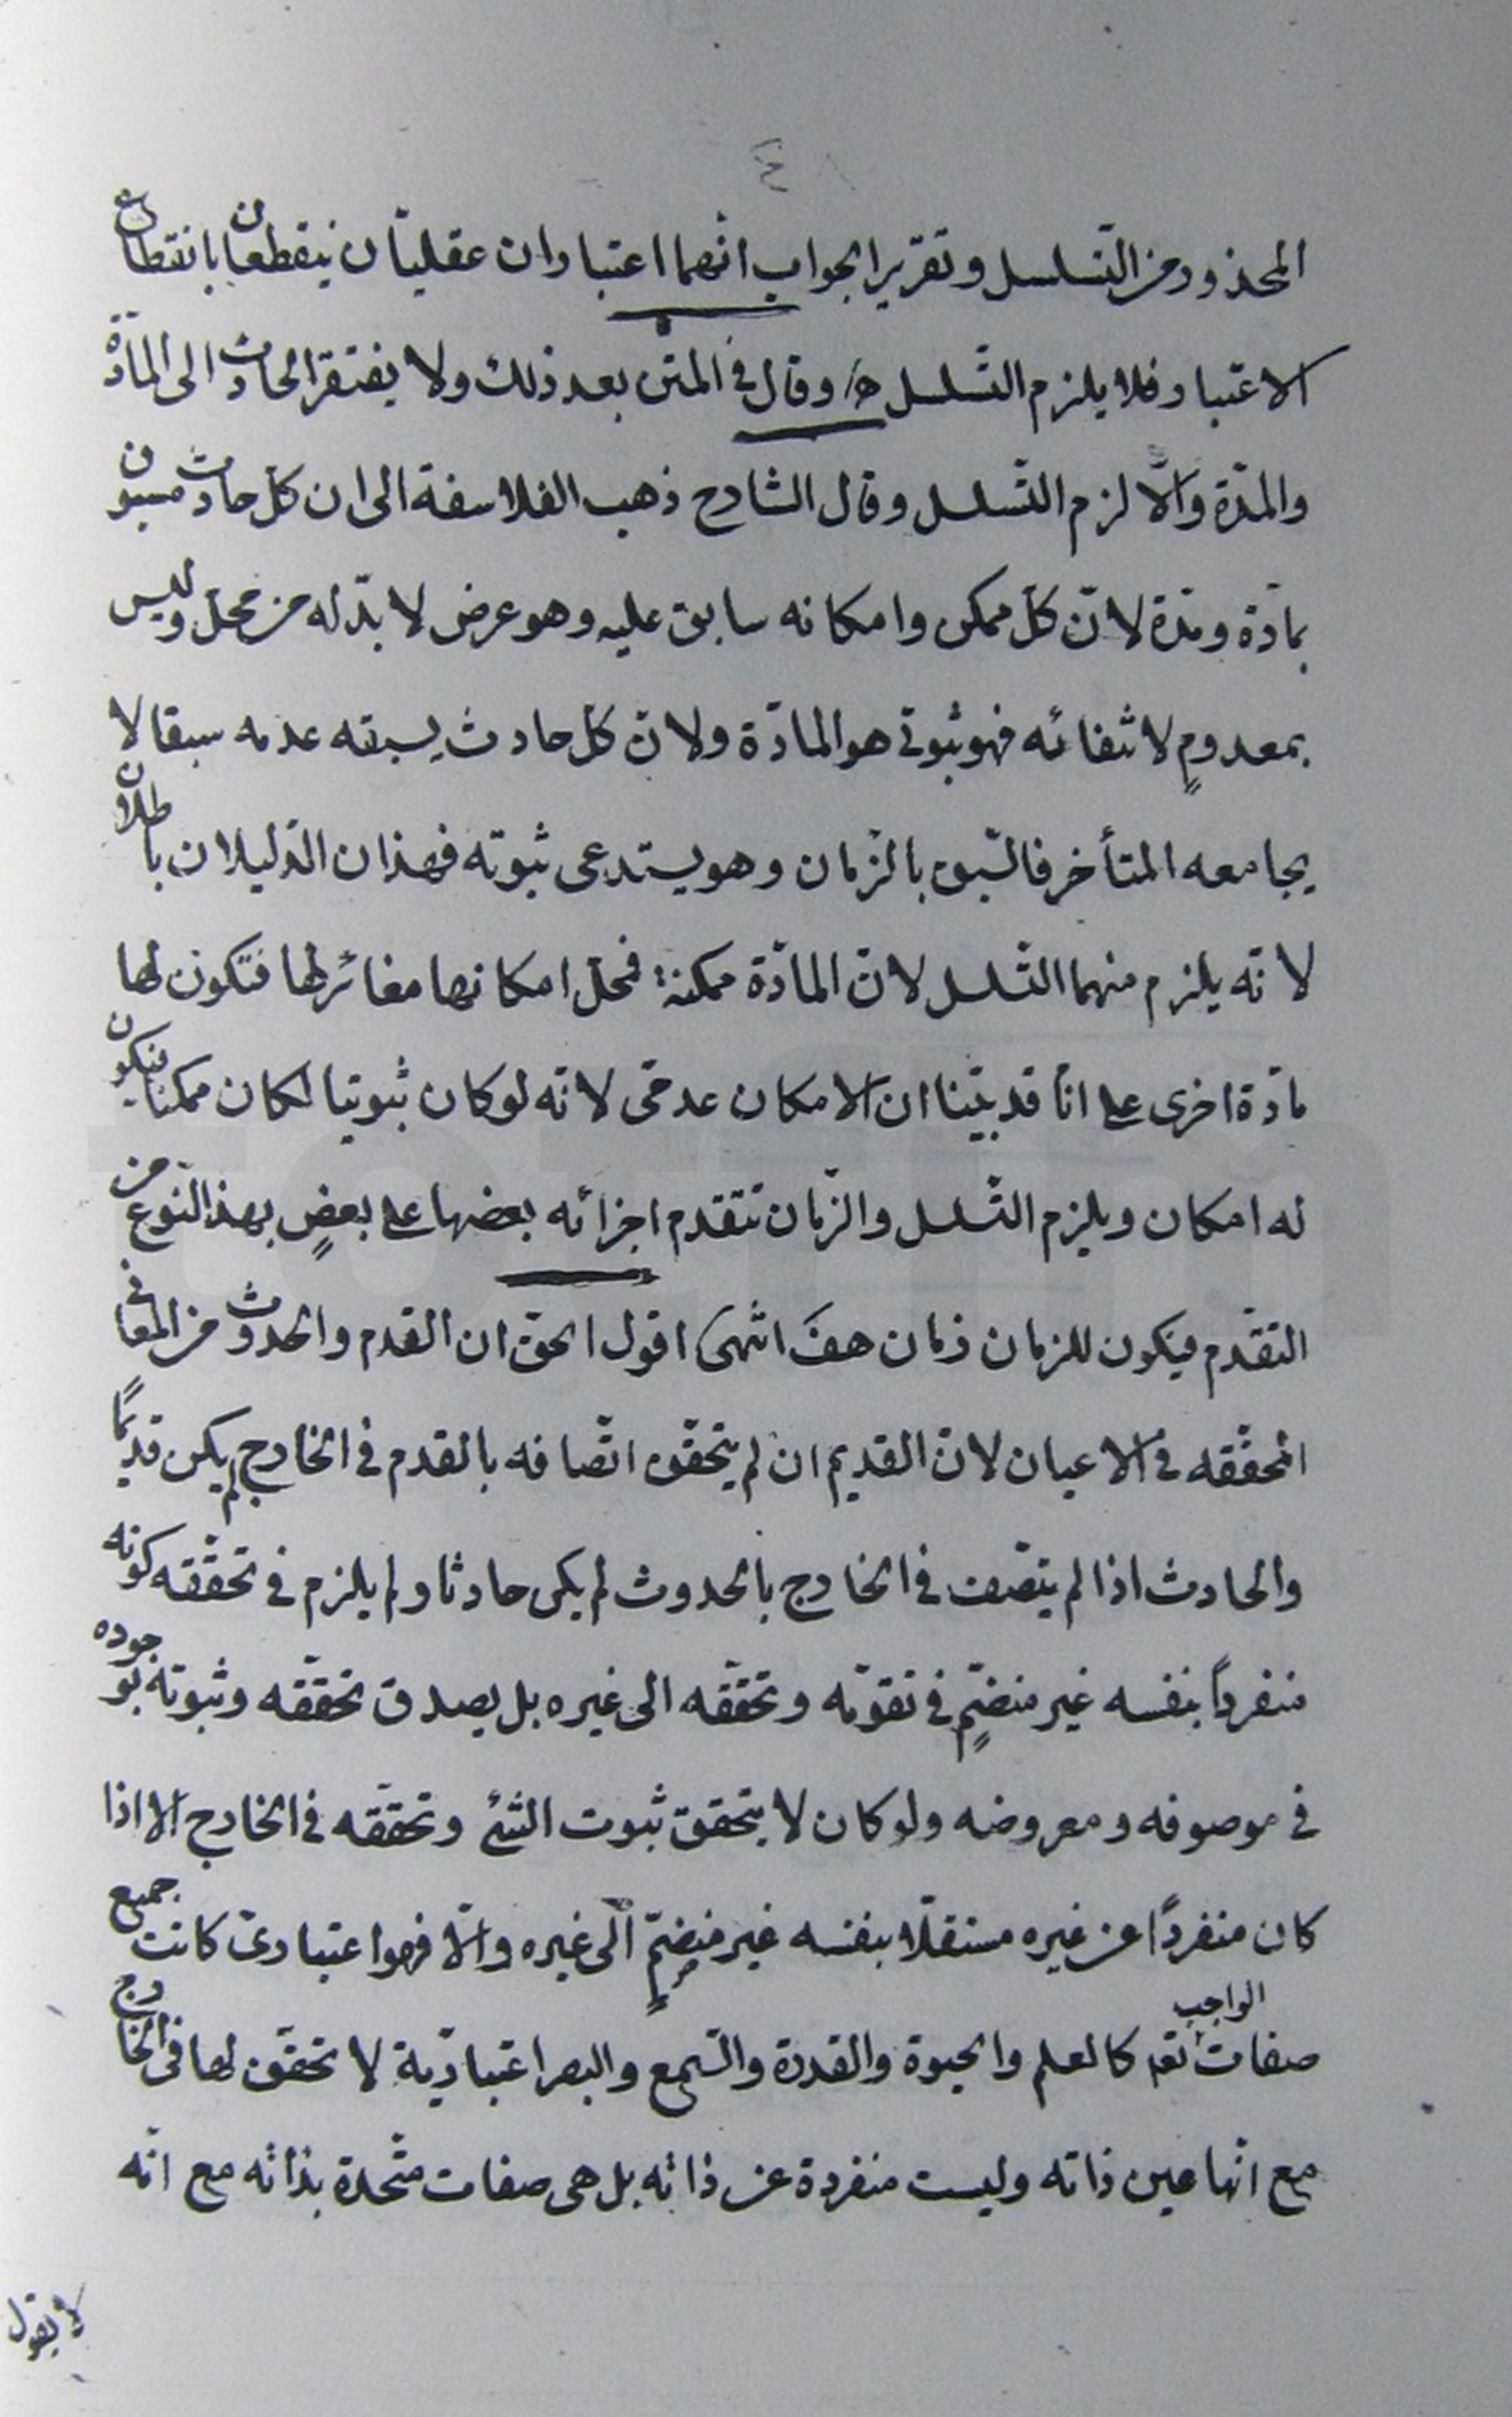 ٤
المحذور من التسلسل وتقرير الجواب انهما اعتباران عقليّان ينقطعان بانقطاع
الاعتبار فلا يلزم التسلسل ه‍ وقال في المتن بعد ذلك ولا يفتقر الحادث الى المادّة
والمدّة والّا لزم التسلسل وقال الشارح ذهب الفلاسفة الى ان كلّ حادث مسبوق
بمادّة ومدّة لانّ كلّ ممكن وامكانه سابق عليه وهو عرض لا بدّ له من محلّ وليس
بمعدومٍ لانتفائه فهو ثبوتي هو المادّة ولانّ كلّ حادث يسبقه عدمه سبقا لا
يجامعه المتأخر فالسّبق بالزّمان وهو يستدعى ثبوته فهذان الدّليلان باطلان
لانّه يلزم منهما التسلسل لانّ المادّة ممكنة فمحلّ امكانها مغائر لها فتكون لها
مادّة اخرى على انّا قد بيّنا ان الامكان عدمّى لانّه لو كان ثبوتيا لكان ممكنا فيكون
له امكان ويلزم التسلسل والزّمان تتقدم اجزائه بعضها على بعضٍ بهذا النّوع من
التقدّم فيكون للزمان زمان هف انتهى اقول الحقّ ان القدم والحدوث من المعانى
المحقّقه في الاعيان لانّ القديم ان لم يتحقّق اتّصافه بالقدم في الخارج لم يكن قديمًا
والحادث اذا لم يتصّف في الخارج بالحدوث لم يكن حادثا ولم يلزم في تحقّقه كونه
منفرداً بنفسه غير منضمٍّ في تقوّمه وتحقّقه الى غيره بل يصدق تحقّقه وثبوته بوجوده
في موصوفه ومعروضه ولو كان لا يتحقق ثبوت الشئ وتحقّقه في الخارج الا اذا
كان منفرداً عن غيره مستقلّا بنفسه غير منضمٍّ الى غيره والّا فهو اعتبارىّ كانت جميع
صفات الواجب تع‍ كالعلم والحيوة والقدرة والسّمع والبصر اعتباريّة لا تحقّق لها في الخارج
مع انّها عين ذاته وليست منفردة عن ذاته بل هى صفات متّحدة بذاته مع انّه
لا يقول